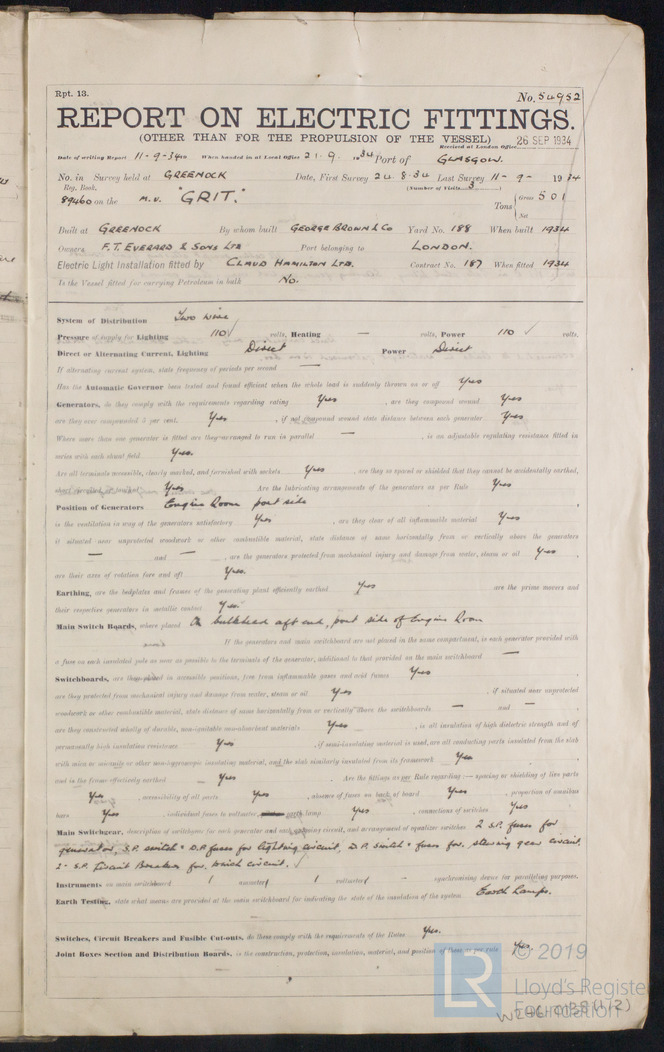 Rpt. 13.
No. 54952
REPORT ON ELECTRIC FITTINGS.
(OTHER THAN FOR THE PROPULSION OF THE VESSEL)
Received at London Office 26 SEP 1934
Date of writing Report 11-9-34 When handed in at Local Office 21.9.1934 Port of GLASGOW.
No. in Survey held at GREENOCK Date, First Survey 24.8.34 Last Survey 11-9-1934
Reg. Book. (Number of Visits 3)
89460 on the M.V. "GRIT." Tons { Gross 501
Net
Built at GREENOCK By whom built GEORGE BROWN & Co Yard No. 188 When built 1934
Owners F.T. EVERARD & SONS LTD Port belonging to LONDON.
Electric Light Installation fitted by CLAUD HAMILTON LTD. Contract No. 187 When fitted 1934
Is the Vessel fitted for carrying Petroleum in bulk No.
System of Distribution Two wire
Pressure of supply for Lighting 110 ✓ volts, Heating — volts, Power 110 ✓ volts.
Direct or Alternating Current, Lighting Direct Power Direct
If alternating current system, state frequency of periods per second —
Has the Automatic Governor been tested and found efficient when the whole load is suddenly thrown on or off Yes
Generators, do they comply with the requirements regarding rating Yes, are they compound wound Yes
are they over compounded 5 per cent. Yes, if not compound wound state distance between each generator Yes
Where more than one generator is fitted are they arranged to run in parallel —, is an adjustable regulating resistance fitted in
series with each shunt field Yes.
Are all terminals accessible, clearly marked, and furnished with sockets Yes, are they so spaced or shielded that they cannot be accidentally earthed,
Yes Are the lubricating arrangements of the generators as per Rule Yes
Position of Generators Engine Room port side
is the ventilation in way of the generators satisfactory Yes, are they clear of all inflammable material Yes
if situated near unprotected woodwork or other combustible material, state distance of same horizontally from or vertically above the generators
— and —, are the generators protected from mechanical injury and damage from water, steam or oil Yes,
are their axes of rotation fore and aft Yes.
Earthing, are the bedplates and frames of the generating plant efficiently earthed Yes are the prime movers and
their respective generators in metallic contact Yes.
Main Switch Boards, where placed On bulkhead aft end, port side of Engine Room
If the generators and main switchboard are not placed in the same compartment, is each generator provided with
a fuse on each insulated pole as near as possible to the terminals of the generator, additional to that provided on the main switchboard —
Switchboards, are they placed in accessible positions, free from inflammable gases and acid fumes Yes
are they protected from mechanical injury and damage from water, steam or oil Yes, if situated near unprotected
woodwork or other combustible material, state distance of same horizontally from or vertically above the switchboards — and —,
are they constructed wholly of durable, non-ignitable non-absorbent materials Yes, is all insulation of high dielectric strength and of
permanently high insulation resistance Yes, if semi-insulating material is used, are all conducting parts insulated from the slab
with mica or micanite or other non-hygroscopic insulating material, and the slab similarly insulated from its framework Yes
and is the frame effectively earthed Yes. Are the fittings as per Rule regarding :— spacing or shielding of live parts
Yes, accessibility of all parts Yes, absence of fuses on back of board Yes, proportion of omnibus
bars Yes, individual fuses to voltmeter, earth lamp Yes, connections of switches Yes
Main Switchgear, description of switchgear for each generator and each outgoing circuit, and arrangement of equalizer switches 2 S.P. fuses for
generator, S.P. switch & D.P. fuses for lighting circuit, D.P. switch & fuses for steering gear circuit.
2 - S.P. Circuit Breakers for winch circuit. ✓
Instruments on main switchboard 1 ammeter 1 voltmeter - synchronising device for paralleling purposes.
Earth Testing, state what means are provided at the main switchboard for indicating the state of the insulation of the system Earth Lamps.
Switches, Circuit Breakers and Fusible Cut-outs, do these comply with the requirements of the Rules Yes.
Joint Boxes Section and Distribution Boards, is the construction, protection, insulation, material, and position of these as per rule Yes.
LR © 2019
Lloyd's Register
Foundation